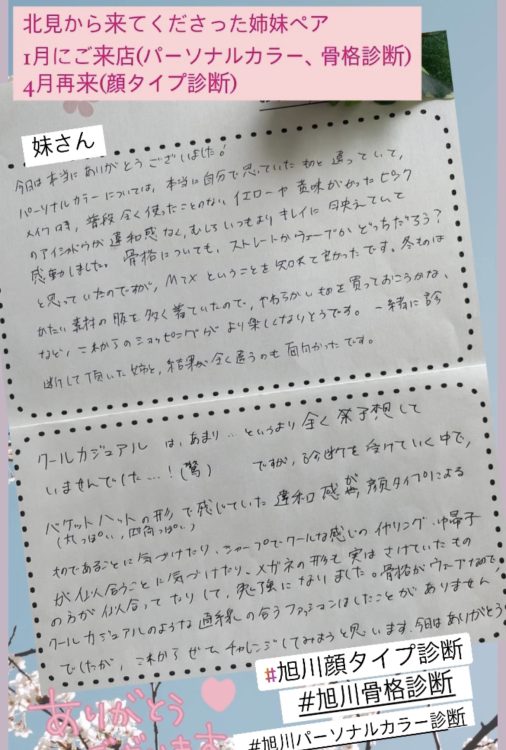 北見から来てくださった姉妹ペア
1月にご来店(パーソナルカラー、骨格診断)
4月再来(顔タイプ診断)
妹さん
今日は本当にありがとうございました！
パーソナルカラーについては、本当に自分で思っていた物と違っていて、
メイク時、普段全く使ったことのない イエローや黄味がかったピンク
のアイシャドウが違和感なく、むしろいつもよりキレイに映えていて
感動しました。骨格についても、ストレートかウェーブかどっちだろう？
と思っていたのですが、MIXということを知れて良かったです。冬ものは
かたい素材の服を多く着ていたので、やわらかいものを買っておこうかな、
など、これからのショッピングがより楽しくなりそうです。一緒に診
断して頂いた姉と、結果が全く違うのも面白かったです。
クールカジュアルは、あまり…というより全く予想して
いませんでした…！(驚) ですが、診断を受けていく中で、
バケットハットの形で感じていた違和感が、顔タイプによる
(丸っぽい、四角っぽい)
ものであることに気づけたり、シャープでクールな感じのイヤリング、帽子
が似合うことに気づけたり、メガネの形も実はさけていたもの
の方が似合ってたりして、勉強になりました。骨格がウェーブなので
クールカジュアルのような直線の合うファッションはしたことがありません
でしたが、これからぜひチャレンジしてみようと思います。今日はありがとう
#旭川顔タイプ診断
#旭川骨格診断
#旭川パーソナルカラー診断
ありがとう
ございます